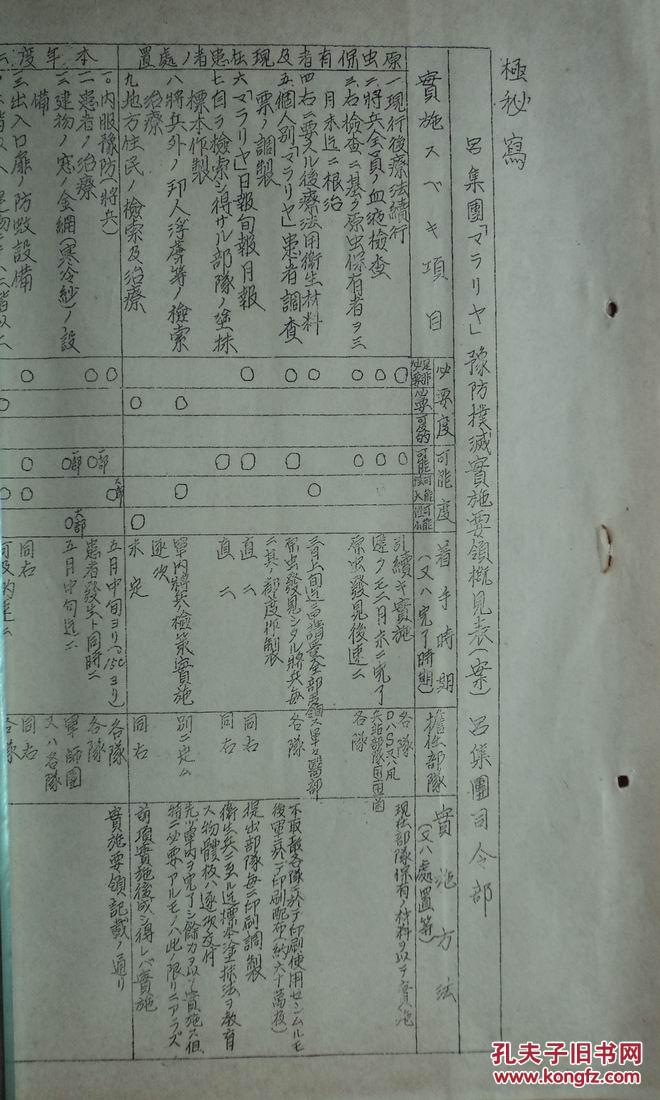 極秘寫
呂集團「マラリヤ」豫防撲滅實施要領概見表(案) 呂集團司令部
實施スベキ項目
必要度
可能度
着手時期
(又ハ完了時期)
擔任部隊
實施方法
(又ハ處置等)
原虫保有者及現在患者ノ處置
一、現行後療法續行
引續キ實施
各隊
二、將兵全員ノ血液檢査
遲クモ二月末ニ完了
三、右檢査ニ基ク原虫保有者ヲ三月末迄ニ根治
原虫發見後速ニ
各隊
現在部隊保有ノ材料ヲ以テ實施
四、右ニ要スル後療法用衛生材料
五、個人別「マラリヤ」患者調査票ノ調製
原虫發見シタル將兵毎ニ其ノ都度作製
各隊
不取敢各隊ニ於テ印刷使用セシムルモ後軍ニ於テ印刷配布(約六十萬枚)
六、「マラリヤ」日報旬報月報
直ニ
同右
提出部隊毎ニ印刷調製
七、自ラ檢索シ得ザル部隊ノ塗抹標本作製
直ニ
同右
衛生兵ニ至ル迄標本塗抹法ヲ教育ス物體板ハ逐次交付
八、將兵外ノ邦人俘虜等ノ檢索治療
軍内將兵檢索實施逐次
別ニ定ム
先ツ軍内ヲ完了シ餘力ヲ以テ實施ス但特ニ必要アルモノハ此ノ限リニアラズ
九、地方住民ノ檢索及治療
未定
同右
前項實施後成シ得レバ實施
本年度
一〇、内服豫防(將兵)
五月中旬ヨリ(15℃ヨリ)
各隊
實施要領記載ノ通リ
一一、患者ノ治療
患者發生ト同時ニ
各隊
一二、建物ノ窓ノ金網(寒冷紗)ノ設備
五月中旬迄ニ
軍師團又ハ各隊
一三、出入口扉ノ防蚊設備
同右
同右
各隊
孔夫子旧书网
www.kongfz.com